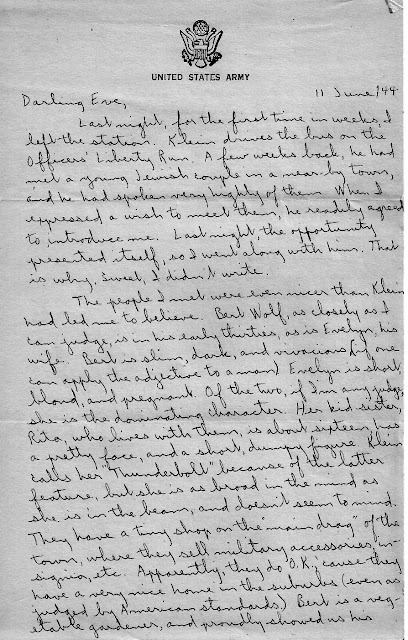 UNITED STATES ARMY
11 June/44
Darling Eve,
Last night, for the first time in weeks, I
left the station. Klein drives the bus on the
Officers' Liberty Run. A few weeks back, he had
met a young Jewish couple in a near-by town,
and he had spoken very highly of them. When I
expressed a wish to meet them, he readily agreed
to introduce me. Last night, the opportunity
presented itself, so I went along with him. That
is why, Sweet, I didn't write.
The people I met were even nicer than Klein
had led me to believe. Bert Wolf, as closely as I
can judge, is in his early thirties, as is Evelyn, his
wife. Bert is slim, dark, and vivacious (if one
can apply the adjective to a man) Evelyn is short,
blond, and pregnant. Of the two, if I'm any judge,
she is the dominating character. Her kid sister,
Rita, who lives with them, is about sixteen, has
a pretty face, and a short, dumpy figure. Klein
calls her "Thunderbolt" because of the latter
feature, but she is as broad in the mind as
she is in the beam, and doesn't seem to mind.
They have a tiny shop on the "main drag" of the
town, where they sell military accessories, in-
signia, etc. Apparently, they do O.K., 'cause they
have a very nice home in the suburbs (even as
judged by American standards.) Bert is a veg-
etable gardener, and proudly showed us his